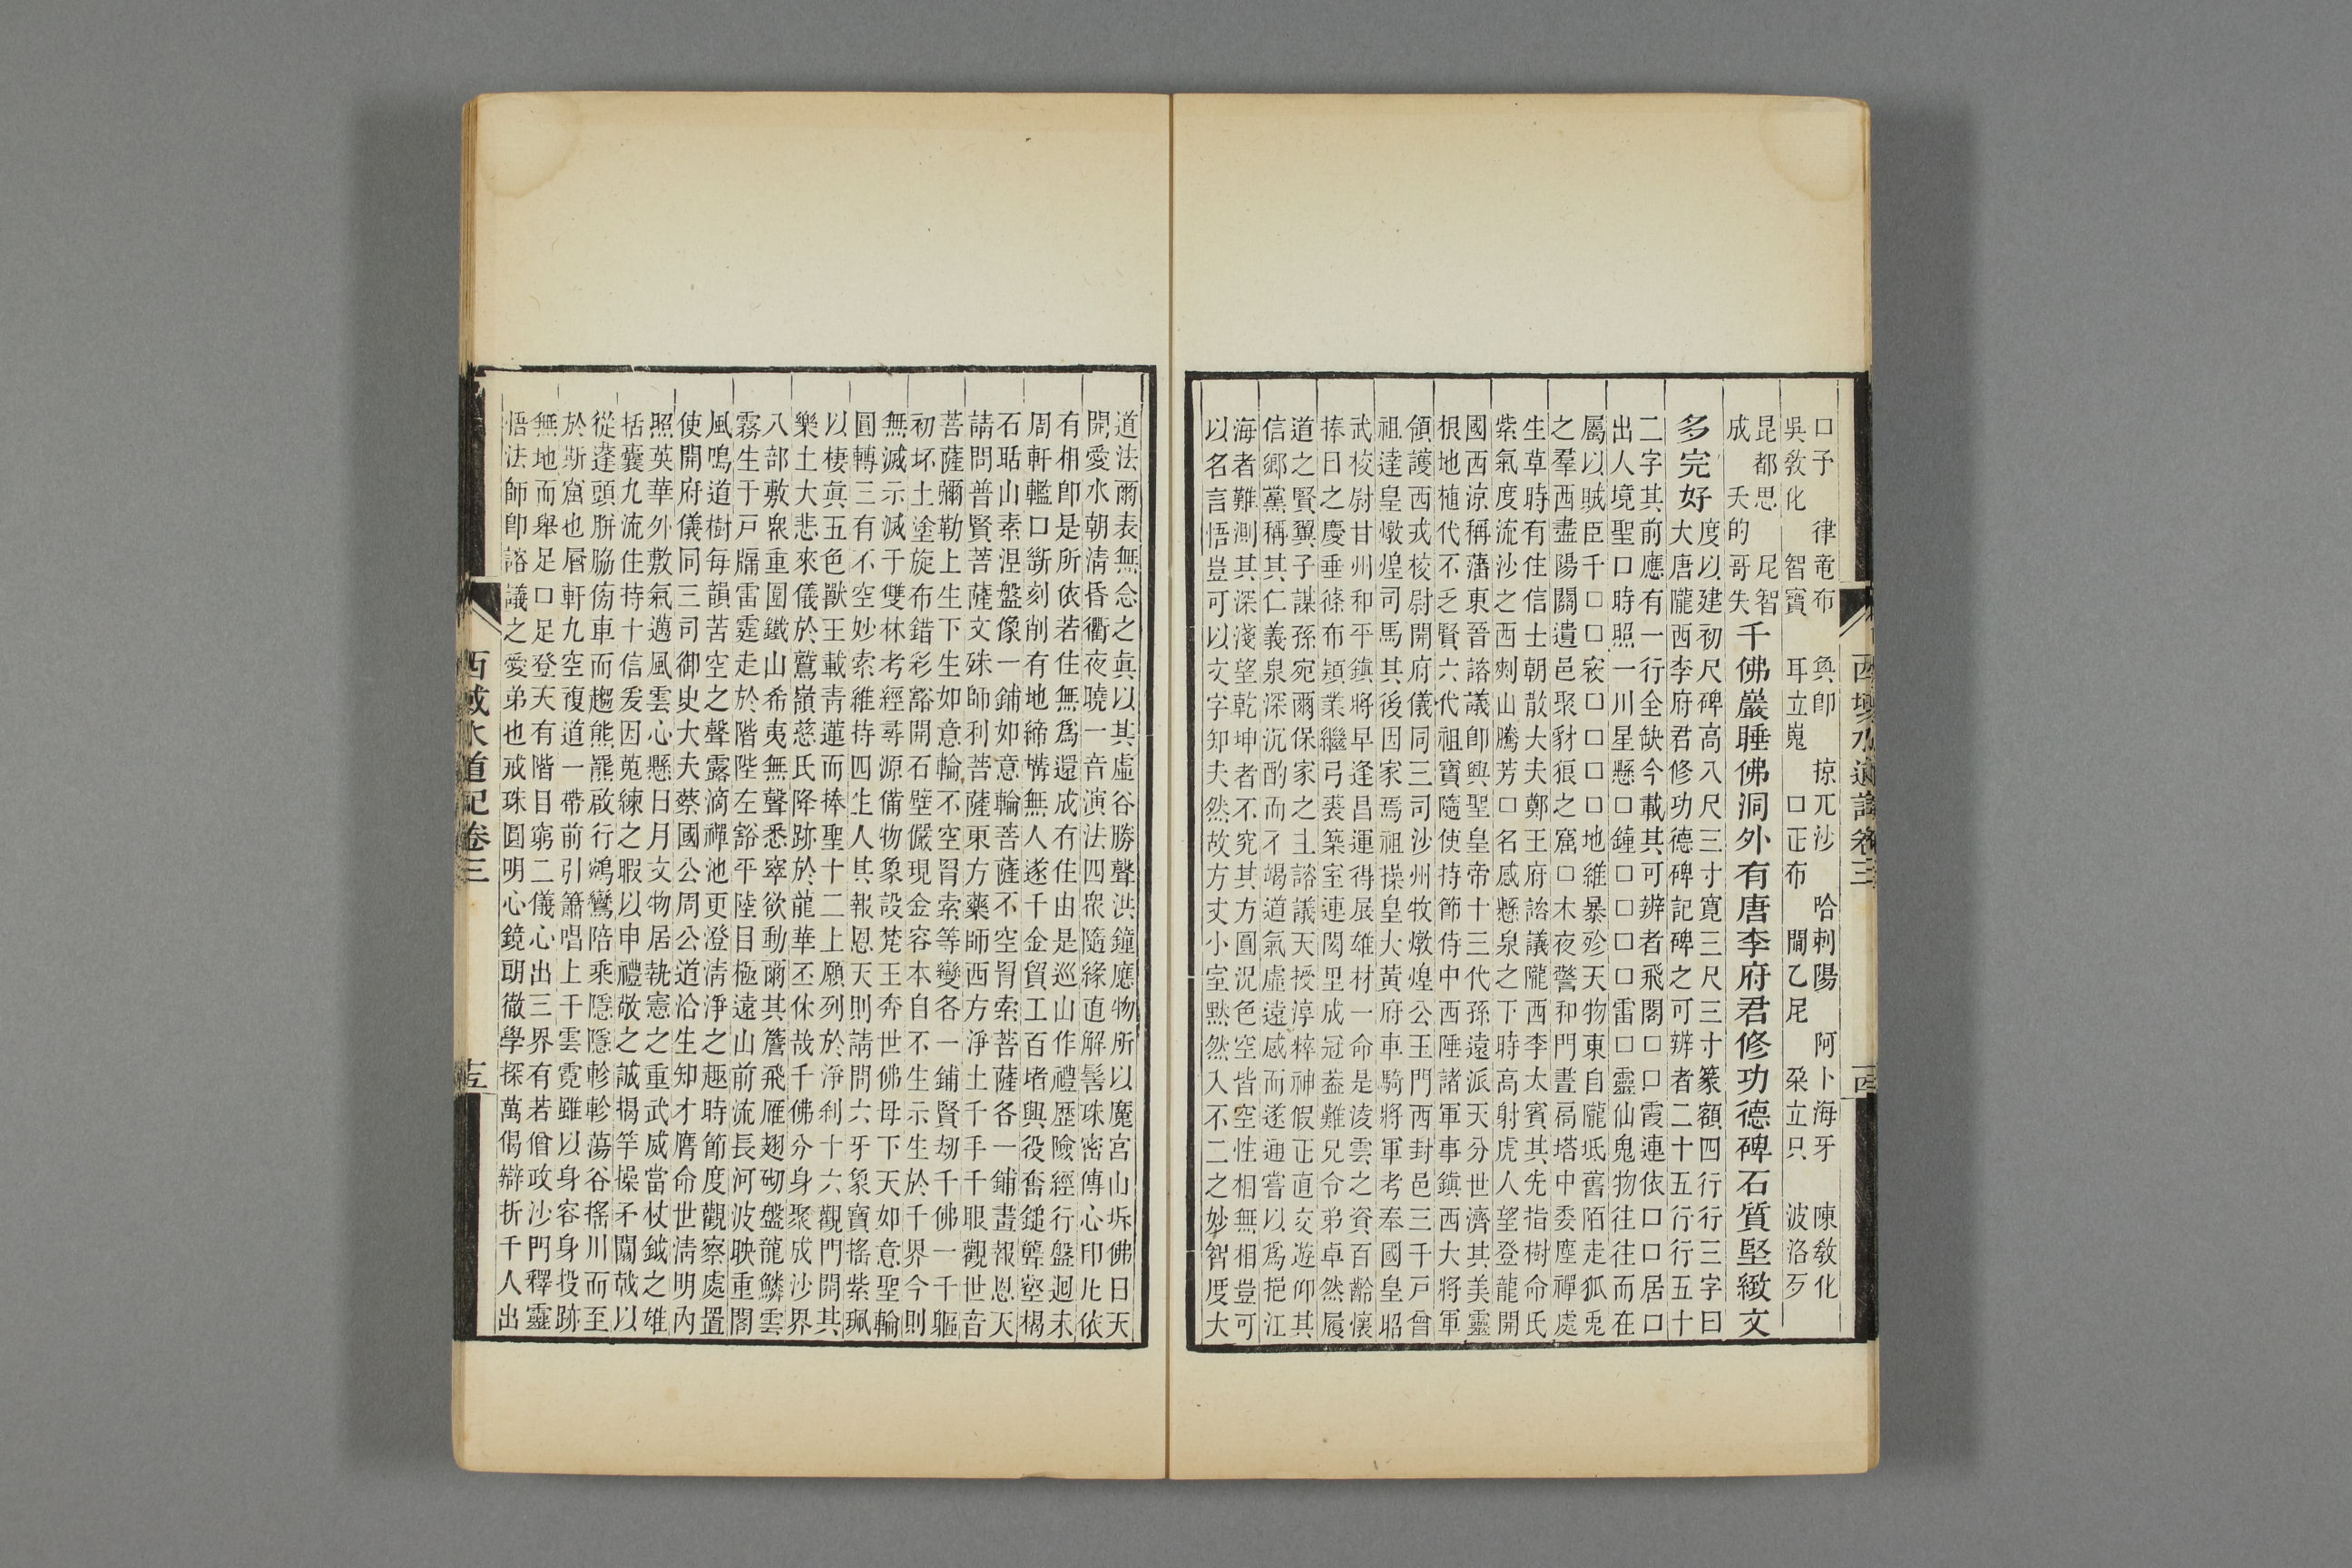 西域水道記卷三
十四
口予　律竜布　奐卽　掠兀沙　哈刺陽　阿卜海牙　陳敎化
吳敎化　智寶　耳立嵬　口正布　閙乙尼　朶立只　波洛歹
昆都思　尼智
成　夭的哥失
千佛巖睡佛洞外有唐李府君修功德碑石質堅緻文
多完好
度以建初尺碑高八尺三寸寬三尺三寸篆額四行行三字曰
大唐隴西李府君修功德碑記碑之可辨者二十五行行五十
二字其前應有一行全缺今載其可辨者飛閣口口霞連依口口居口
出人境聖口時照一川星懸口鐘口口口口雷口靈仙鬼物往往而在
屬以賊臣千口口寇口口口地維暴殄天物東自隴坻舊陌走狐兎
之羣西盡陽關遺邑聚豺狼之窟口木夜警和門晝扃塔中委塵禪處
生草時有住信士朝散大夫鄭王府諮議隴西李太賓其先指樹命氏
紫氣度流沙之西刺山騰芳口名感懸泉之下時高射虎人望登龍開
國西涼稱藩東晉諮議卽興聖皇帝十三代孫遠派天分世濟其美靈
根地植代不乏賢六代祖寶隨使持節侍中西陲諸軍事鎭西大將軍
領護西戎校尉開府儀同三司沙州牧燉煌公玉門西封邑三千戶曾
祖達皇燉煌司馬其後因家焉祖操皇大黃府車騎將軍考奉國皇昭
武校尉甘州和平鎭將早逢昌運得展雄材一命是淩雲之資百齡懷
捧日之慶垂條布穎業繼弓裘築室連閎里成冠葢難兄令弟卓然履
道之賢翼子謀孫宛爾保家之主諮議天授淳粹神假正直交遊仰其
信鄉黨稱其仁義泉深沉酌而不竭道氣虛遠感而遂通嘗以爲挹江
海者難測其深淺望乾坤者不究其方圓況色空皆空性相無相豈可
以名言悟豈可以文字知夫然故方丈小室黙然入不二之妙智度大
道法爾表無念之眞以其虛谷勝聲洪鐘應物所以魔宮山坼佛日天
開愛水朝清昏衢夜曉一音演法四衆隨緣直解髻珠密傳心印凡依
有相卽是所依若住無爲還成有住由是巡山作禮歷險經行盤迴未
周軒檻口嶄刻削有地締構無人遂千金貿工百堵興役奮鎚聾壑楬
石聒山素涅盤像一鋪如意輪菩薩不空罥索菩薩各一鋪畫報恩天
請問普賢菩薩文殊師利菩薩東方藥師西方淨土千手千眼觀世音
菩薩彌勒上生下生如意輪不空罥索等變各一鋪賢劫千佛一千軀
初坏土塗旋布錯彩豁開石壁儼現金容本自不生示生於千界今則
無滅示滅于雙林考經尋源備物象設梵王奔世佛母下天如意聖輪
圓轉三有不空妙索維持四生人其報恩天則請問六牙象寶搖紫珮
以棲眞五色獸王載靑蓮而捧聖十二上願列於淨剎十六觀門開其
樂土大悲來儀於鷲嶺慈氏降跡於龍華丕休哉千佛分身聚成沙界
八部敷衆重圍鐵山希夷無聲悉窣欲動爾其簷飛雁翅砌盤龍鱗雲
霧生于戸牖雷霆走於階陛左豁平陸目極遠山前流長河波映重閣
風鳴道樹每韻苦空之聲露滴禪池更澄淸淨之趣時節度觀察處置
使開府儀同三司御史大夫蔡國公周公道洽生知才膺命世淸明內
照英華外敷氣邁風雲心懸日月文物居執憲之重武威當杖鉞之雄
括囊九流住持十信爰因蒐練之暇以申禮敬之誠揭竿操矛闒戟以
從蓬頭胼脇傍車而趨熊羆啟行鵷鸞陪乘隱隱軫軫蕩谷搖川而至
於斯窟也層軒九空複道一帶前引簫唱上干雲霓雖以身容身投跡
無地而舉足口足登天有階目窮二儀心出三界有若僧政沙門釋靈
悟法師卽諮議之愛弟也戒珠圓明心鏡朗徹學探萬偈辯折千人出
西域水道記卷三